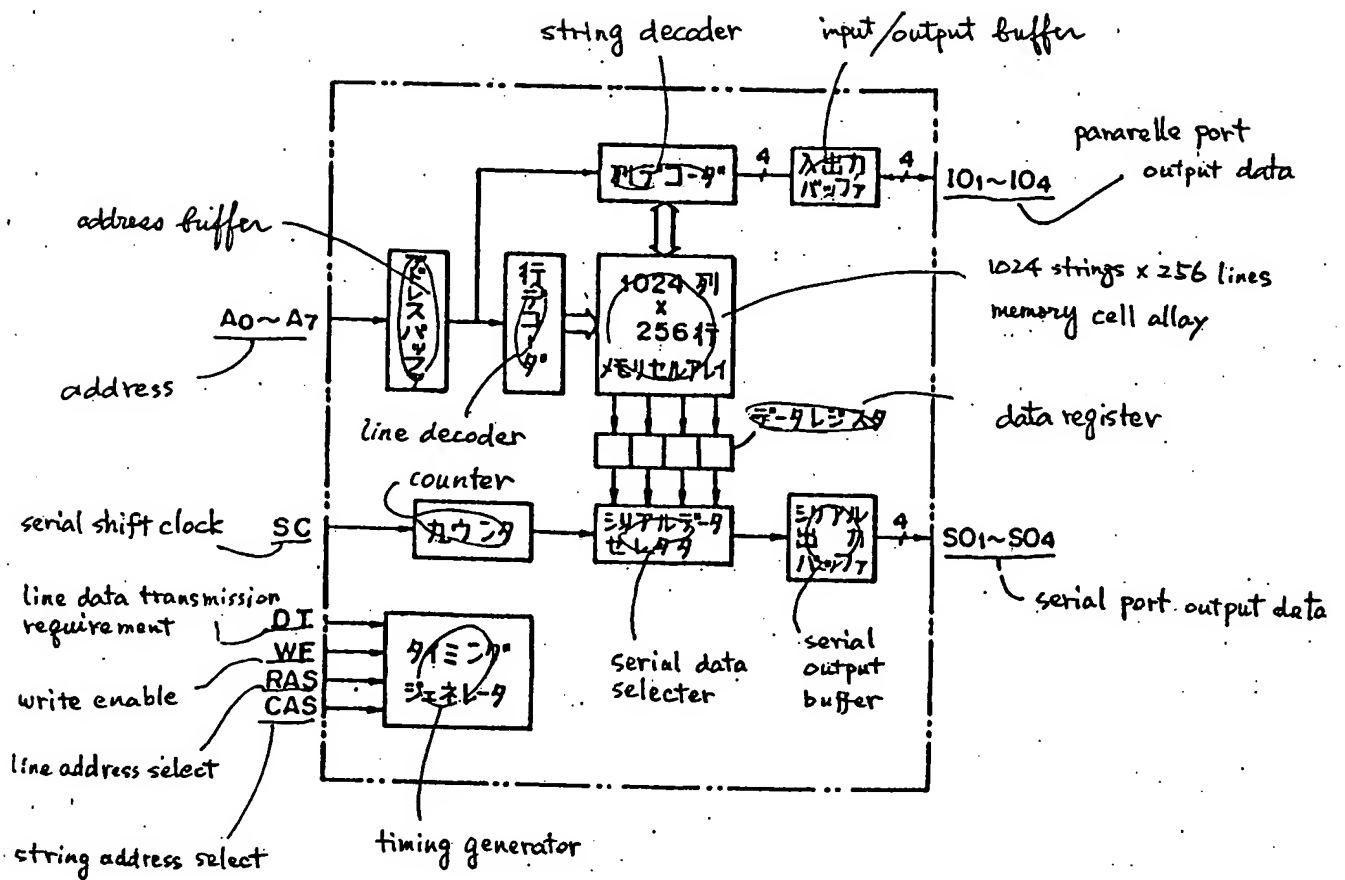 string decoder
input/output buffer
panarelle port
output data
列デコーダ
4
入出力
バッファ
4
IO1~IO4
address buffer
アドレスバッファ
行デコーダ
1024 列
×
256 行
メモリセルアレイ
1024 strings x 256 lines
memory cell allay
A0~A7
address
line decoder
データレジスタ
data register
counter
serial shift clock
SC
カウンタ
シリアルデータ
セレクタ
シリアル
出力
バッファ
4
SO1~SO4
serial port output data
line data transmission
requirement
DT
WE
RAS
CAS
タイミング
ジェネレータ
write enable
line address select
string address select
timing generator
serial data
selecter
serial
output
buffer